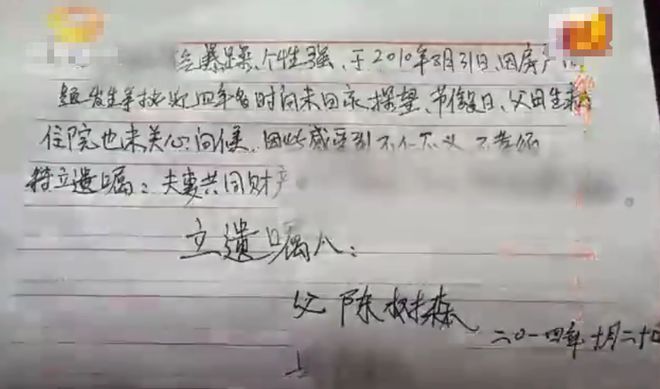 暴躁、个性强、于2010年8月31日、因房产
发生争执近四年多时间未回家探望、节假日、父母生病
住院也未关心问候、因此感受到不仁不义
特立遗嘱：夫妻共同财产
立遗嘱人：
父 陈树森
二〇一四年十月二十